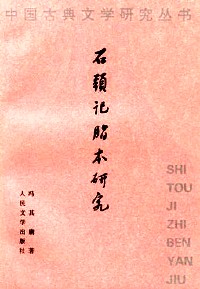 中国古典文学研究丛书
石頭記脂本研究
冯其庸 著
人民文学出版社
SHI
TOU
JI
ZHI
BEN
YAN
JIU